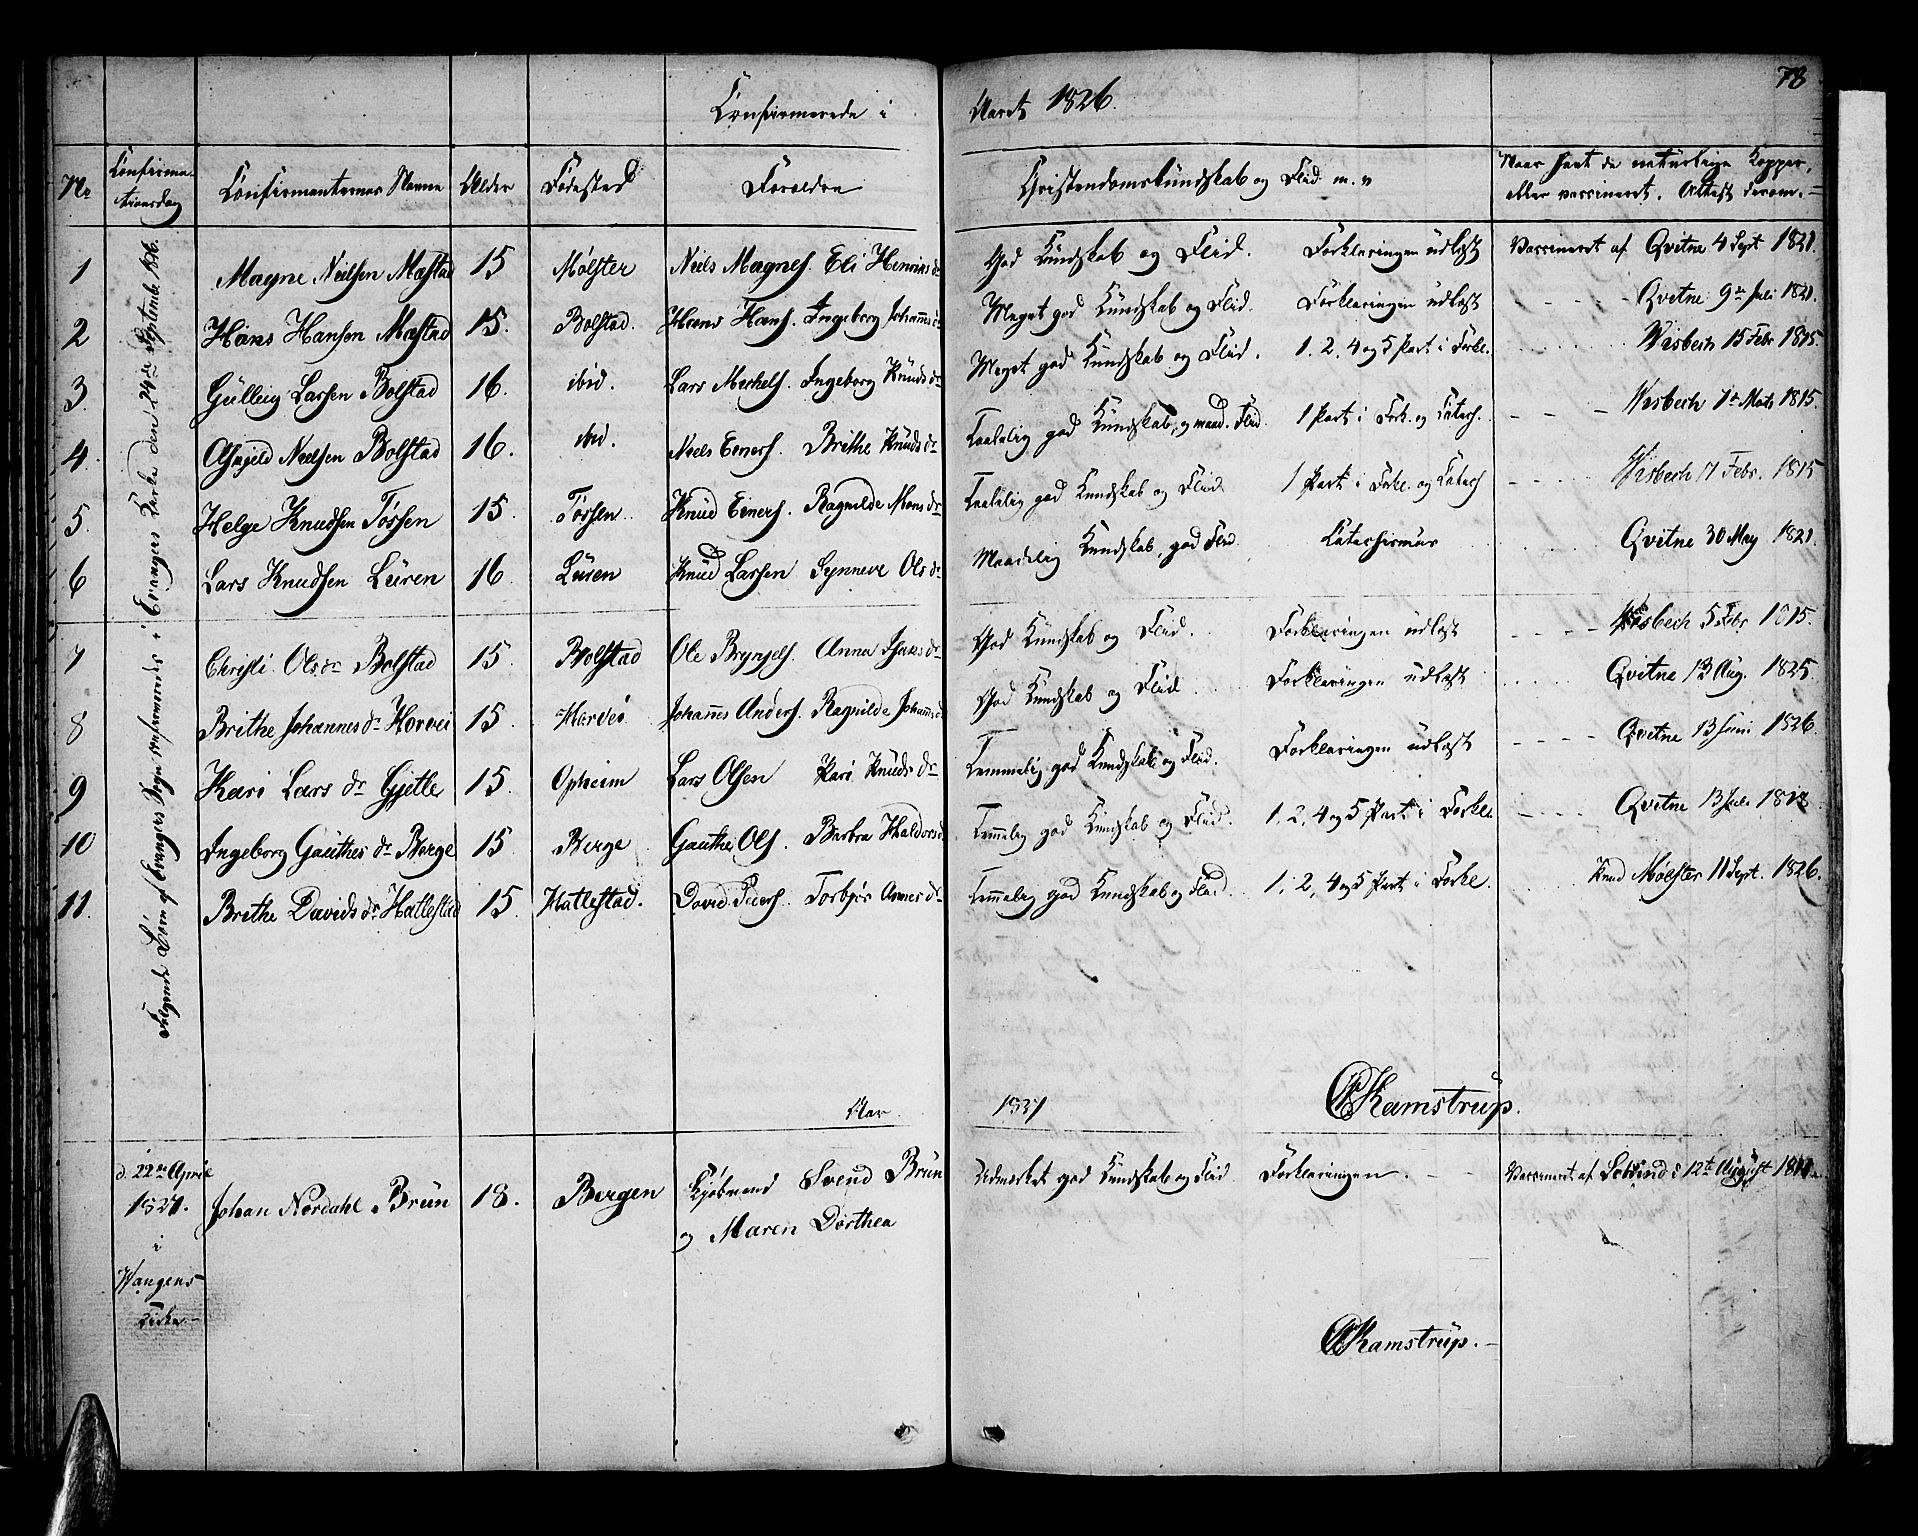 78
Confirmerede i Aaret 1826.
No Confirmationsdag Confirmanternes Navne Alder Fødested Forældre Christendomskundskab og Flid m. v Naar havt de naturlige Kopper, eller vaccineret. Attest derom.
Følgende Børn af Evangers Sogn confirmerede i Evangers Kirke den 24de Septemb. 1826.
1 Magne Neilsen Mæstad 15 Mølster Niels Magnes. Eli Henriks dr God Kundskab og Flid. Forklaringen udlæst Vaccineret af Qvitne 4 Sept 1821.
2 Hans Hansen Mæstad 15. Bolstad. Hans Hans. Ingeborg Johannis dr Meget god Kundskab og Flid. Forklaringen udlæst Qvitne 9de Juli 1821.
3. Gulleig Larsen Bolstad 16. ibid. Lars Merkels. Ingeborg Knuds dr Meget god Kundskab og Flid. 1. 2. 4 og 5 Part i Forkl. Wisbech 15 Febr 1815.
4. Asgjeld Neilsen Bolstad 16. ibid. Niels Einers. Brithe Knuds dr Taalelig god Kundskab, og maad. Flid. 1 Part i Fork. og Catech. Wisbech 1te Mats 1815.
5. Helge Knudsen Tøssen 15. Tøssen. Knud Einers. Ragnilde Mons dr Taalelig god Kundskab og Flid 1 Part i Forkl. og Catech Wisbech 17 Febr. 1815
6 Lars Knudsen Lüren 16 Lüren Knud Larsen Synneve Ols dr Maadelig Kundskab, god Flid. Catechismus Qvitne 30 May 1821.
7 Christi Ols dr Bolstad 15. Bolstad Ole Brynjels. Anna Hans dr God Kundskab og Flid. Forklaringen udlæst Wisbech 5 Febr 1815.
8 Brithe Johannes dr Horvei 15. Horvei. Johannes Anders. Ragnilde Johannis dr God Kundskab og Flid Forklaringen udlæst Qvitne 13 Aug. 1825.
9 Kari Lars dr Gjelle 15. Opheim Lars Olsen Kari Knuds dr Temmelig god Kundskab og Flid. Forklaringen udlæst Qvitne 13 Juni 1826.
10 Ingeborg Gauthes dr Berge 15. Berge Gauthe Ols. Barbra Haldors dr Temmelig god Kundskab og Flid. 1. 2, 4 og 5 Part i Forkl. Qvitne 13 Juli
11. Brithe Davids dr Hallestad 15. Hallestad. David Peders. Torbjør Arnes dr Temmelig god Kundskab og Flid. 1. 2, 4 og 5 Part i Forkl. Knud Mølster 11 Sept. 1826.
Kamstrup.
Aar 1827
d. 22de April 1827. i Wangens Kirke.- Johan Nordahl Brun 18. Bergen Kjøbmand Svend Brun og Maren Dorthea Udmærket god Kundskab og Flid. Forklaringen. Vaccineret af 12te August
Kamstrup.